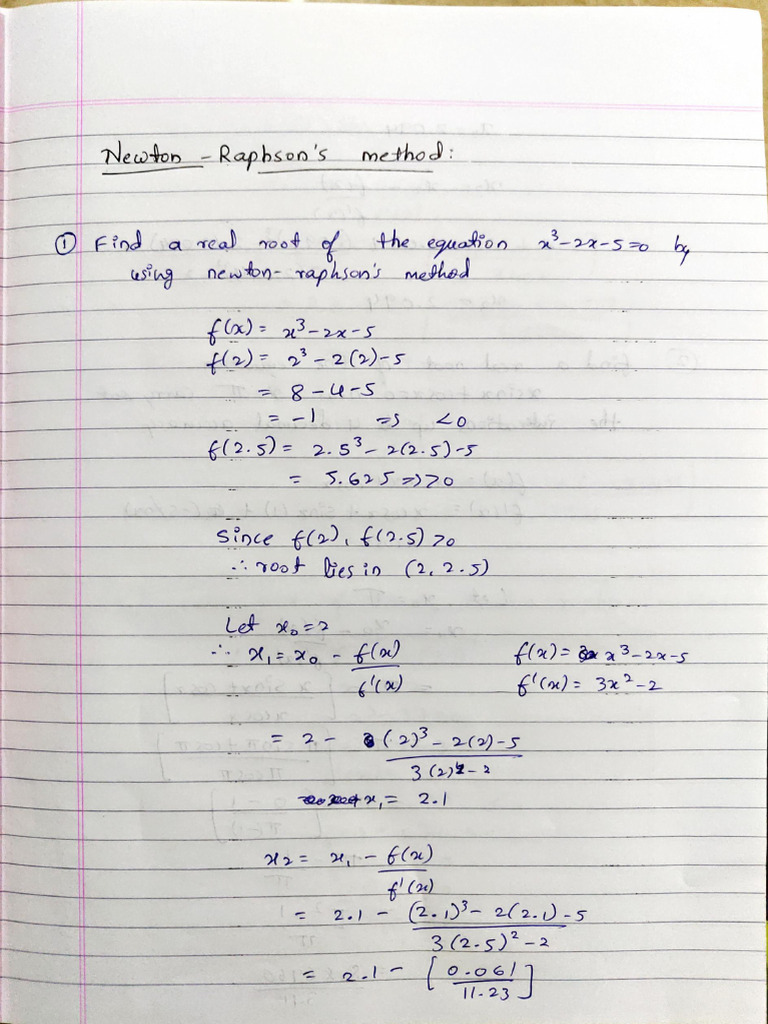 Newton - Raphson's method:
① Find a real root of the equation x³-2x-5=0 by
using newton-raphson's method
f(x) = x³-2x-5
f(2) = 2³-2(2)-5
= 8-4-5
= -1 => <0
f(2.5) = 2.5³-2(2.5)-5
= 5.625 => >0
Since f(2), f(2.5) >0
∴ root lies in (2, 2.5)
Let x₀ = 2
∴ x₁ = x₀ - f(x)/f'(x) f(x) = x³-2x-5
f'(x) = 3x²-2
= 2 - (2)³-2(2)-5 / 3(2)²-2
x₁ = 2.1
x2 = x₁ - f(x)/f'(x)
= 2.1 - (2.1)³-2(2.1)-5 / 3(2.5)²-2
= 2.1 - [0.061/11.23]